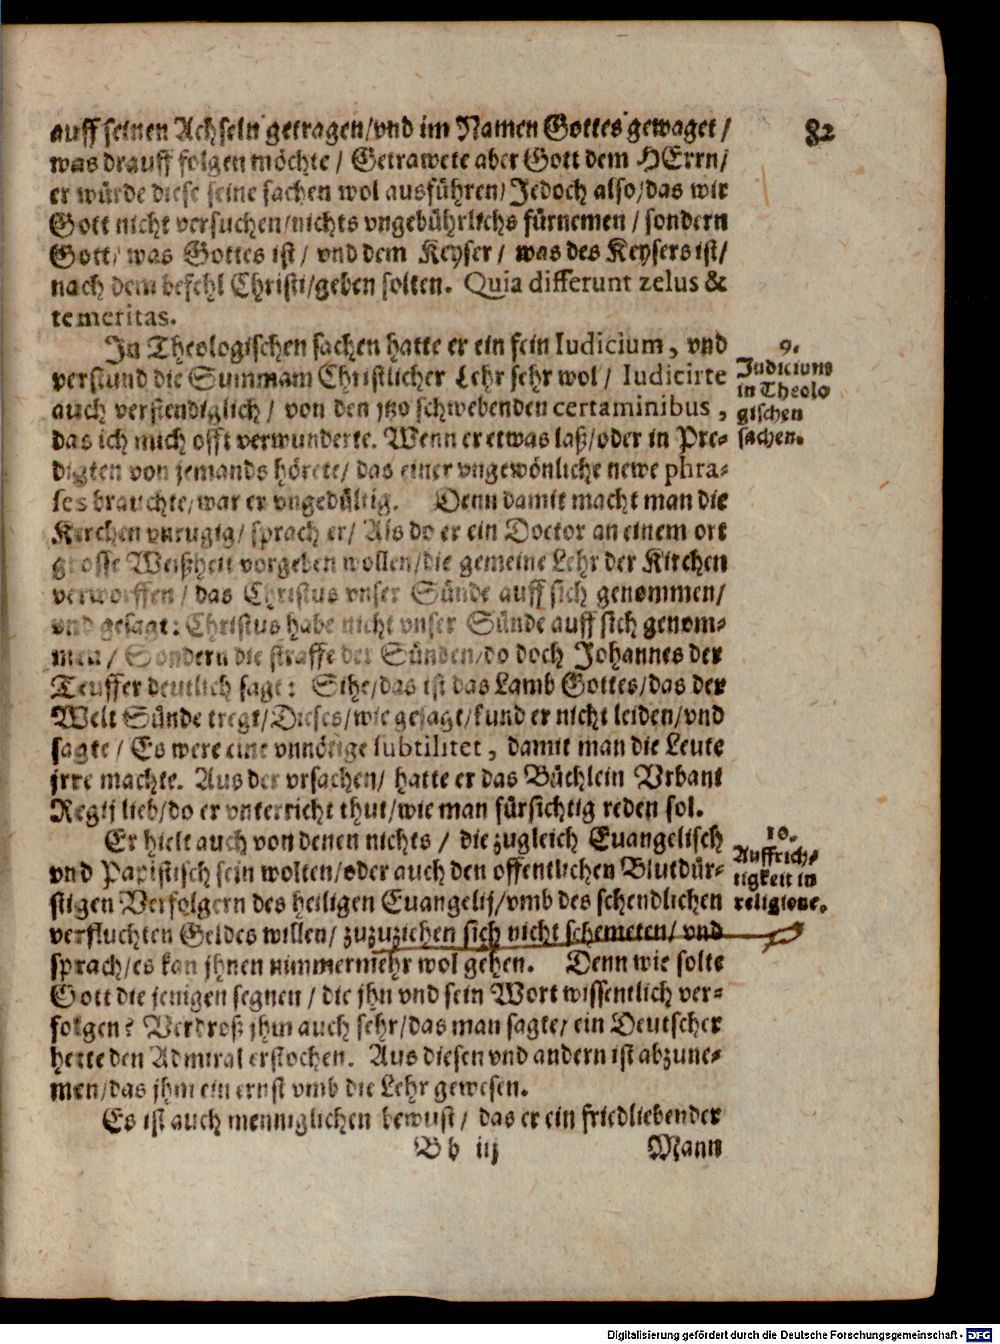 82
auff seinen Achseln getragen/vnd im Namen Gottes gewaget /
was drauff folgen möchte / Getrawete aber Gott dem HErrn/
er würde diese seine sachen wol ausführen/Jedoch also/das wir
Gott nicht versuchen/nichts vngebührlichs fürnemen / sondern
Gott/ was Gottes ist / vnd dem Keyser / was des Keysers ist/
nach dem befehl Christi/geben solten. Quia differunt zelus &
temeritas.
In Theologischen sachen hatte er ein fein Iudicium, vnd
verstund die Summam Christlicher Lehr sehr wol / Iudicirte
auch verstendiglich / von den jtzo schwebenden certaminibus,
das ich mich offt verwunderte. Wenn er etwas laß/oder in Pre-
digten von jemands hörete/ das einer vngewönliche newe phra-
ses brauchte/war er vngedültig. Denn damit macht man die
Kirchen vnrugig/ sprach er/ Als do er ein Doctor an einem ort
grosse Weißheit vorgeben wollen/die gemeine Lehr der Kirchen
verworffen / das Christus vnser Sünde auff sich genommen/
vnd gesagt: Christus habe nicht vnser Sünde auff sich genom-
men / Sondern die straffe der Sünden/do doch Johannes der
Teuffer deutlich sagt: Sihe/das ist das Lamb Gottes/das der
Welt Sünde tregt/Dieses/wie gesagt/kund er nicht leiden/vnd
sagte / Es were eine vnnötige subtilitet, damit man die Leute
jrre machte. Aus der vrsachen/ hatte er das Büchlein Vrbani
Regij lieb/do er vnterricht thut/wie man fürsichtig reden sol.
9.
Iudicium
in Theolo
gischen
sachen.
Er hielt auch von denen nichts / die zugleich Euangelisch
vnd Papistisch sein wolten/oder auch den offentlichen Blutdür-
stigen Verfolgern des heiligen Euangelij/vmb des schendlichen
verfluchten Geldes willen/ zuzuziehen sich nicht schemeten/ vnd
sprach/es kan jhnen nimmermehr wol gehen. Denn wie solte
Gott die jenigen segnen / die jhn vnd sein Wort wissentlich ver-
folgen? Verdroß jhm auch sehr/das man sagte/ ein Deutscher
hette den Admiral erstochen. Aus diesen vnd andern ist abzune-
men/das jhm ein ernst vmb die Lehr gewesen.
10.
Auffrich-
tigkeit in
religione.
Es ist auch menniglichen bewust / das er ein friedliebender
Bb iij
Mann
Digitalisierung gefördert durch die Deutsche Forschungsgemeinschaft - DFG